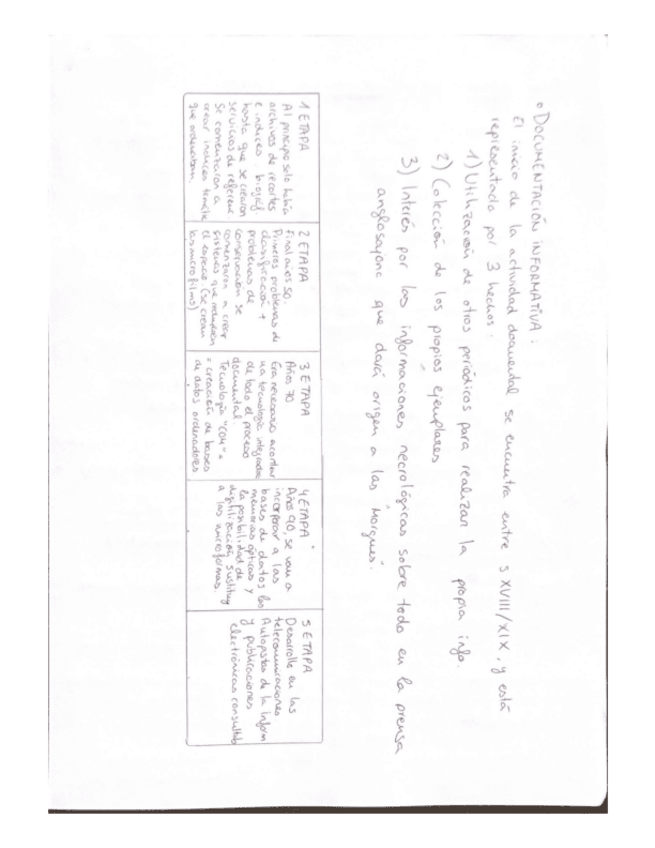 • DOCUMENTACIÓN INFORMATIVA:
El inicio de la actividad documental se encuentra entre S XVIII/XIX, y está
representado por 3 hechos.
1) Utilización de otros periódicos para realizar la propia info.
2) Colección de los propios ejemplares
3) Interés por las informaciones necrológicas sobre todo en la prensa
anglosajona que dará origen a las Morgues.
1 ETAPA
Al principo solo había
archivos de recortes
e indices biográf.
hasta que se crearon
servicios de referenc.
Se comenzaron a
crear indices
que ordenaban.
2 ETAPA
final años 50.
Primeros problemas de
clasificación +
problemas de
conservación se
comenzaron a crear
sistemas que reducían
el espacio. (se crean
las micro films)
3 ETAPA
Años 70
Era necesario acordar
una tecnología integradora
de todo el proceso
documental
Tecnología "COM" =
= creación de bases
de datos ordenadores
4 ETAPA
Años 90, se van a
incorporar a las
bases de datos las
memorias ópticas y
la posibilidad de
digitilización, sustituy
a las microformas.
5 ETAPA
Desarrollo en las
telecomunicaciones
Autopistas de la inform
y publicaciones
electrónicas consultab